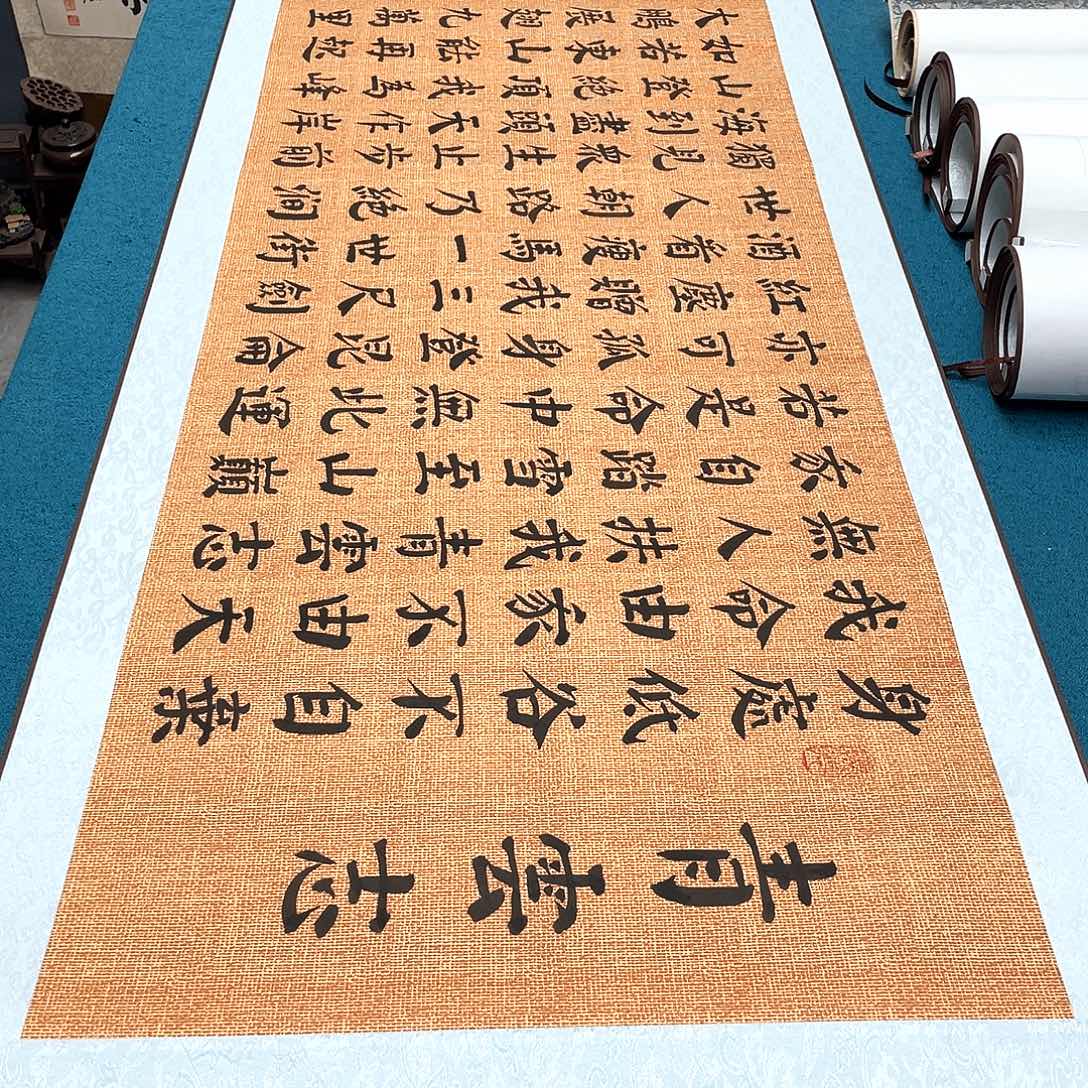 青雲志
身處低谷不自棄
我命由家不由天
無人扶我青雲志
家自踏雪至山巔
若是命中無此運
亦可孤身登昆侖
紅塵贈我三尺劍
酒着瘦馬一世街
世人朝路乃絕澗
獨見眾生止步前
海到盡頭天作岸
山登絕頂我為峰
如若東山能再起
大鵬展翅九萬里